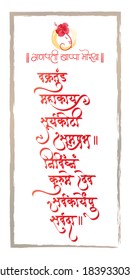 ॥ गणपती बाप्पा मोरया ॥
वक्रतुंड
महाकाय
सूर्यकोटी
समप्रभ ।
निर्विघ्नं
कुरूमे देव
सर्वकार्येषु
सर्वदा ॥